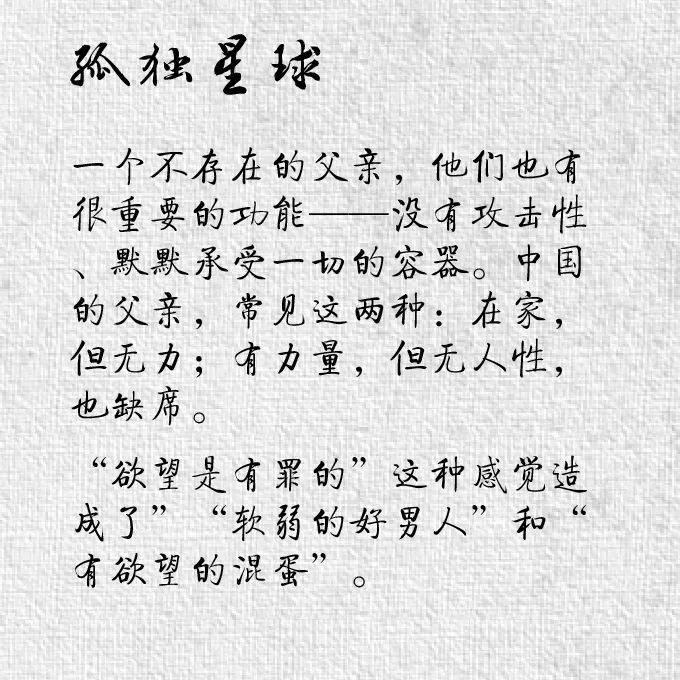 孤独星球
一个不存在的父亲，他们也有
很重要的功能——没有攻击性
、默默承受一切的容器。中国
的父亲，常见这两种：在家，
但无力；有力量，但无人性，
也缺席。
“欲望是有罪的”这种感觉造
成了”“软弱的好男人”和“
有欲望的混蛋”。